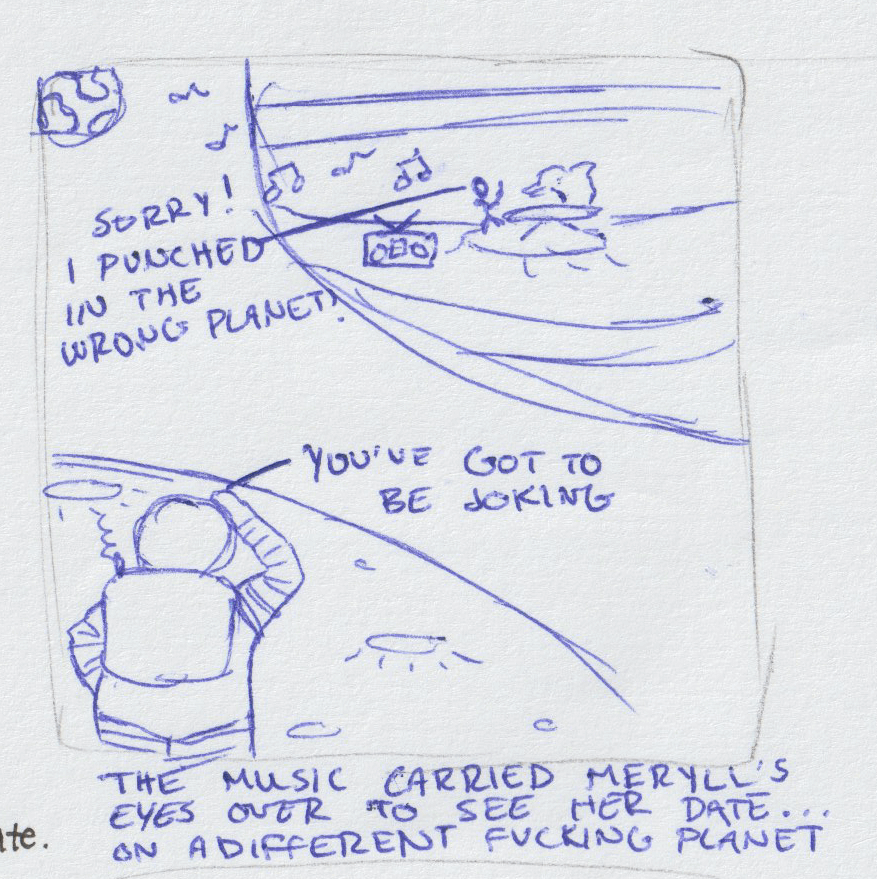 SORRY!
I PUNCHED
IN THE
WRONG PLANET!
YOU'VE GOT TO
BE JOKING
THE MUSIC CARRIED MERYLL'S
EYES OVER TO SEE HER DATE...
ON A DIFFERENT FUCKING PLANET